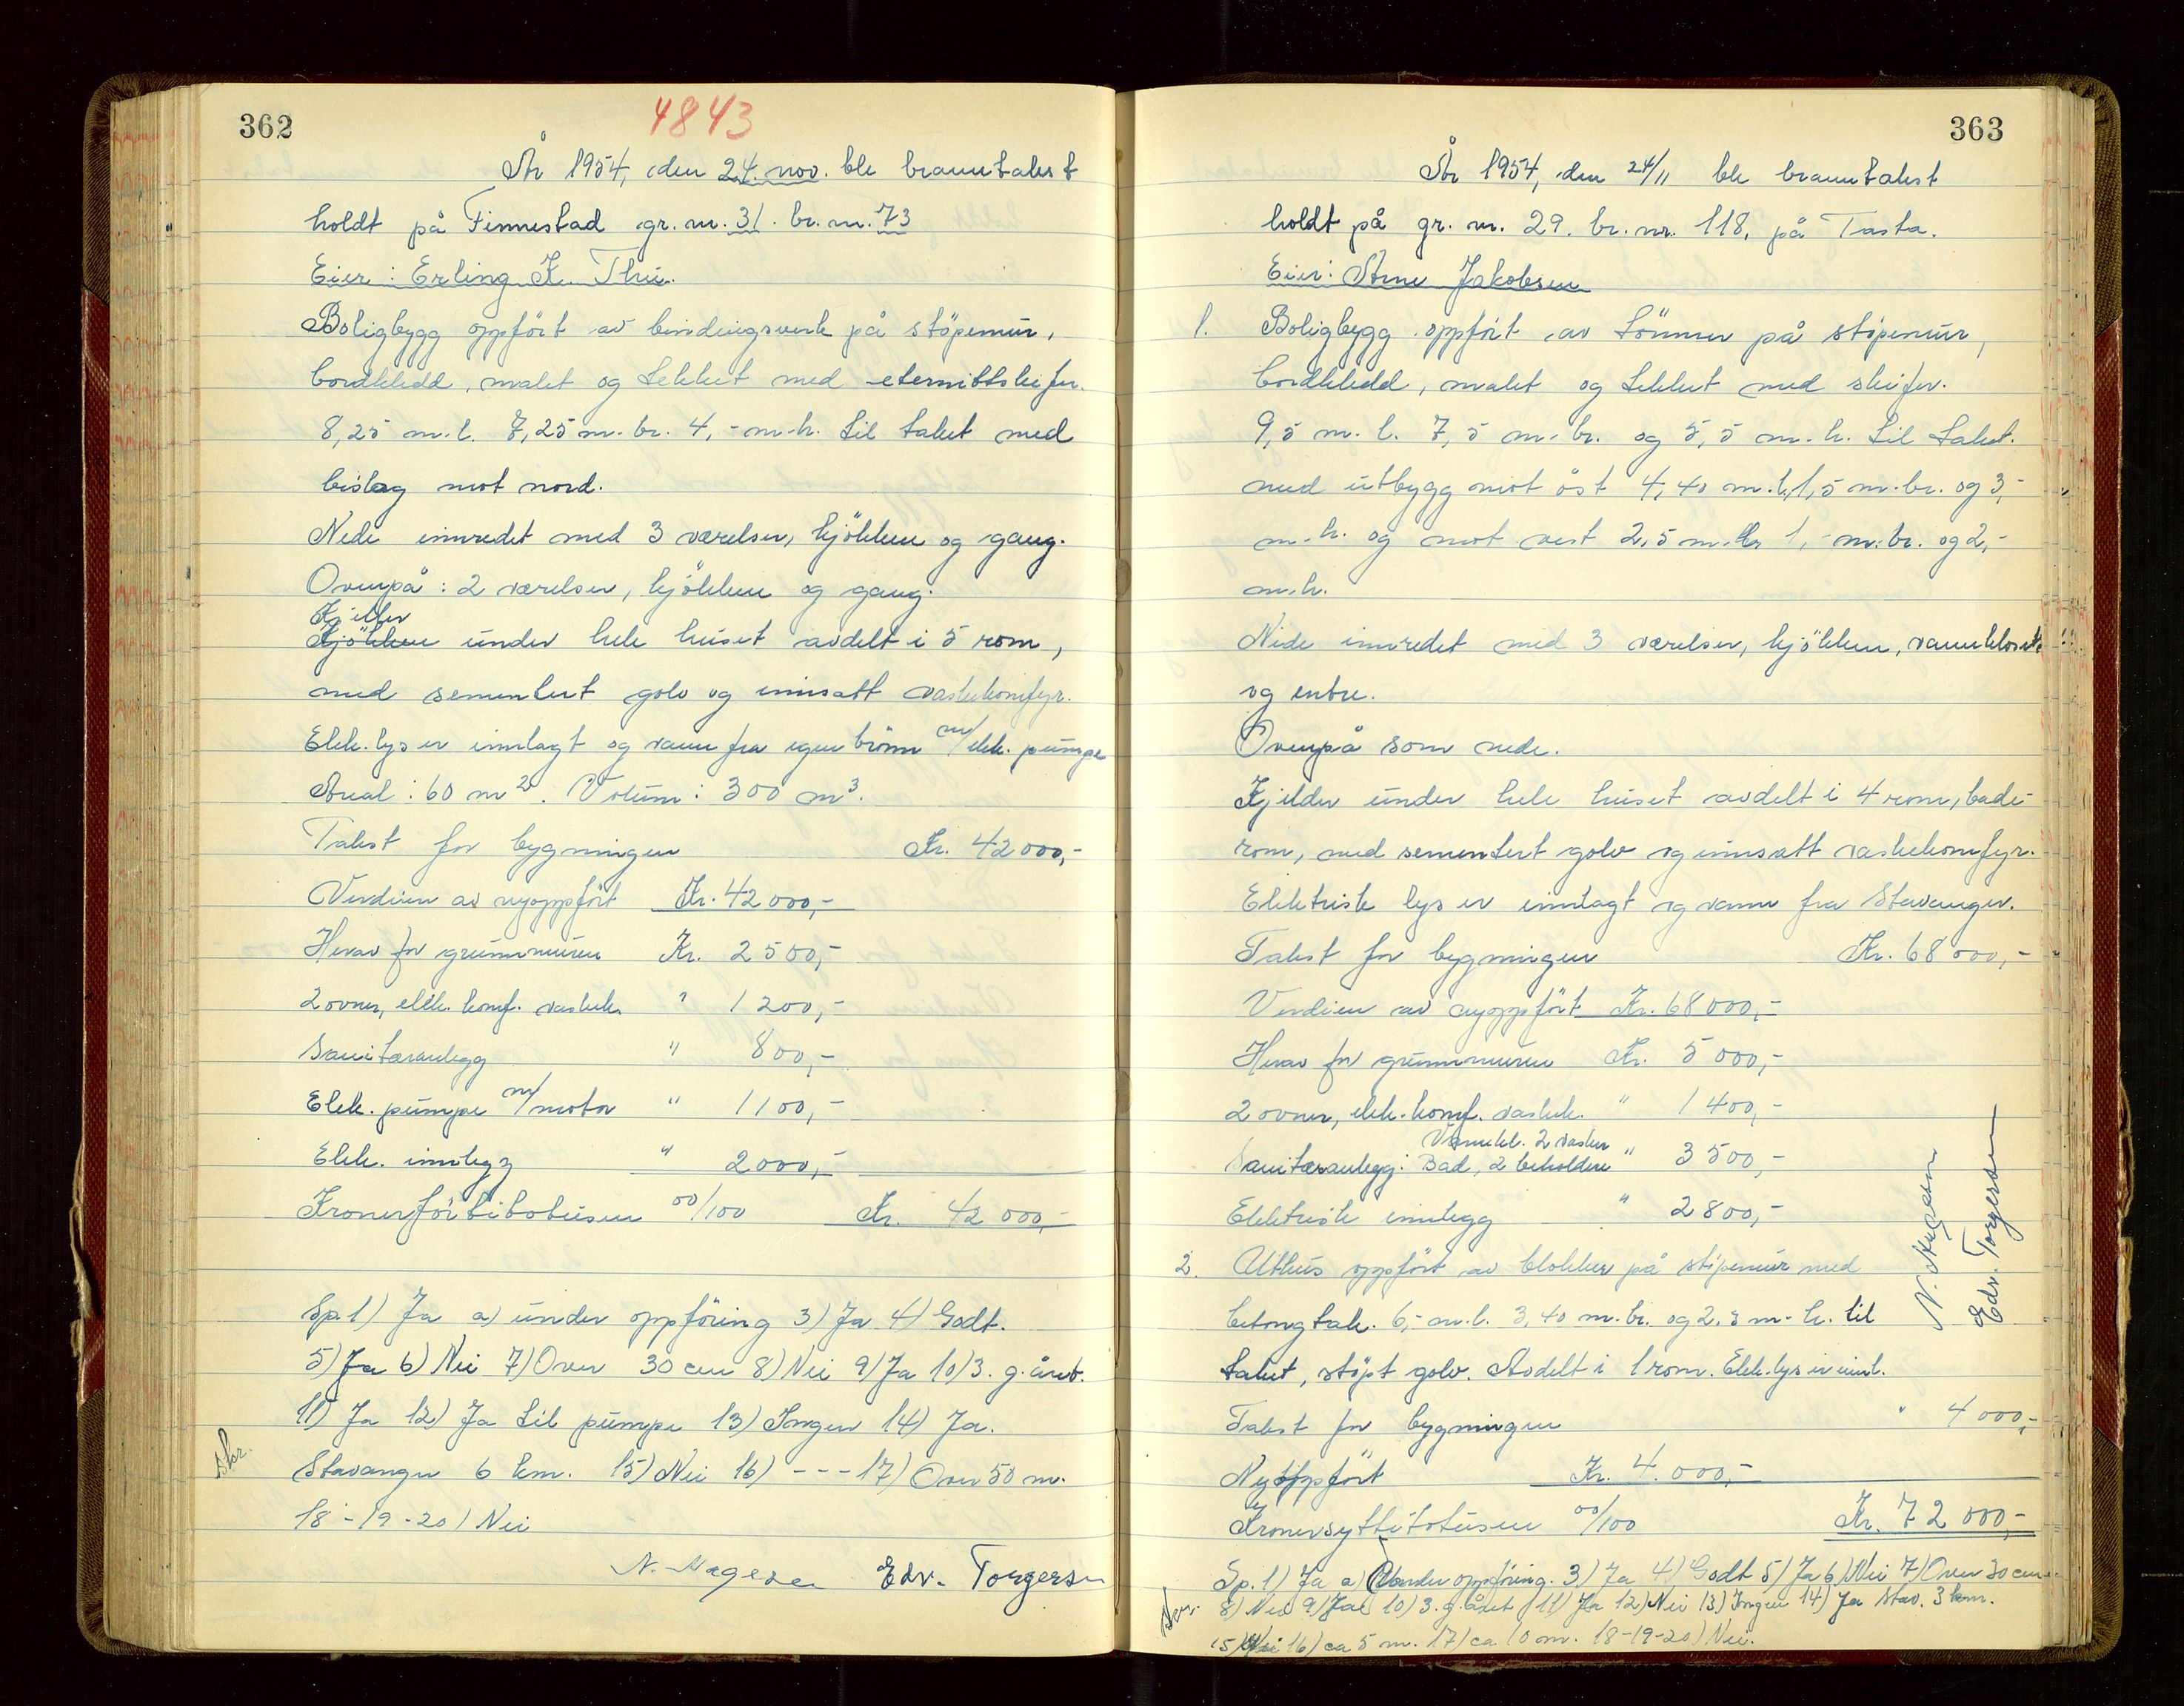 362
4843
År 1954, den 24. nov. ble branntakst
holdt på Finnestad gr. nr. 31. br. nr. 73
Eier: Erling K. Thu.
Boligbygg oppfört av bindingsverk på stöpemur,
bordkledd, malet og tekket med eternittskifer.
8,25 m. l. 7,25 m. br. 4,- m. h. til taket med
bislag mot nord.
Nede innredet med 3 værelser, kjökken og gang.
Ovenpå: 2 værelser, kjökken og gang.
Kjeller
Kjökken under hele huset avdelt i 5 rom,
med sementert golv og innsatt vaskekomfyr.
Elek. lys er innlagt og vann fra egen brönn m/elek. pumpe
Areal: 60 m². Volum: 300 m³.
Takst for bygningen Kr. 42000,-
Verdien av nyoppfört Kr. 42000,-
Herav for grunnmuren Kr. 2500,-
2 ovner, elek. komf. vaskek. " 1200,-
Sanitæranlegg " 800,-
Elek. pumpe m/motor " 1100,-
Elek. innlegg " 2000,-
Kronerförtitotusen 00/100 Kr. 42000,-
Sp. 1) Ja a) under oppföring 3) Ja 4) Godt.
5) Ja 6) Nei 7) Over 30 cm 8) Nei 9) Ja 10) 3. g. året.
11) Ja 12) Ja til pumpe 13) Ingen 14) Ja.
Skr.
Stavanger 6 km. 15) Nei 16) --- 17) Over 50 m.
18-19-20) Nei
Edv. Torgersen
363
År 1954, den 24/11 ble branntakst
holdt på gr. nr. 29. br. nr. 118, på Tasta.
Eier: Arne Jakobsen
1. Boligbygg oppfört av tömmer på stöpemur,
bordkledd, malet og tekket med skifer.
9,5 m. l. 7,5 m. br. og 5,5 m. h. til taket.
med utbygg mot öst 4,40 m. l, 1,5 m. br. og 3,-
m. h. og mot vest 2,5 m. l. 1,- m. br. og 2,-
m. h.
Nede innredet med 3 værelser, kjökken, vannklosett
og entre.
Ovenpå som nede.
Kjelder under hele huset avdelt i 4 rom, bade-
rom, med sementert golv og innsatt vaskekomfyr.
Elektrisk lys er innlagt og vann fra Stavanger.
Takst for bygningen Kr. 68000,-
Verdien av nyoppfört Kr. 68000,-
Herav for grunnmuren Kr. 5000,-
2 ovner, elek. komf. vaskek. " 1400,-
Vannkl. 2 vasker
Sanitæranlegg: Bad, 2 beholdere " 3500,-
Elektrisk innlegg " 2800,-
2. Uthus oppfört av blokker på stöpemur med
betongtak. 6,- m. l. 3,40 m. br. og 2,5 m. h. til
taket, stöpt golv. Avdelt i 1 rom. Elek. lys er innl.
Takst for bygningen " 4000,-
Nyoppfört Kr. 4.000,-
Kronersyttitotusen 00/100 Kr. 72000,-
Sp. 1) Ja a) Under oppföring. 3) Ja 4) Godt 5) Ja 6) Nei 7) Over 30 cm.
8) Nei 9) Ja 10) 3. g. året 11) Ja 12) Nei 13) Ingen 14) Ja Stav. 3 km.
15) Nei 16) ca 5 m. 17) ca 10 m. 18-19-20) Nei.
Edv. Torgersen